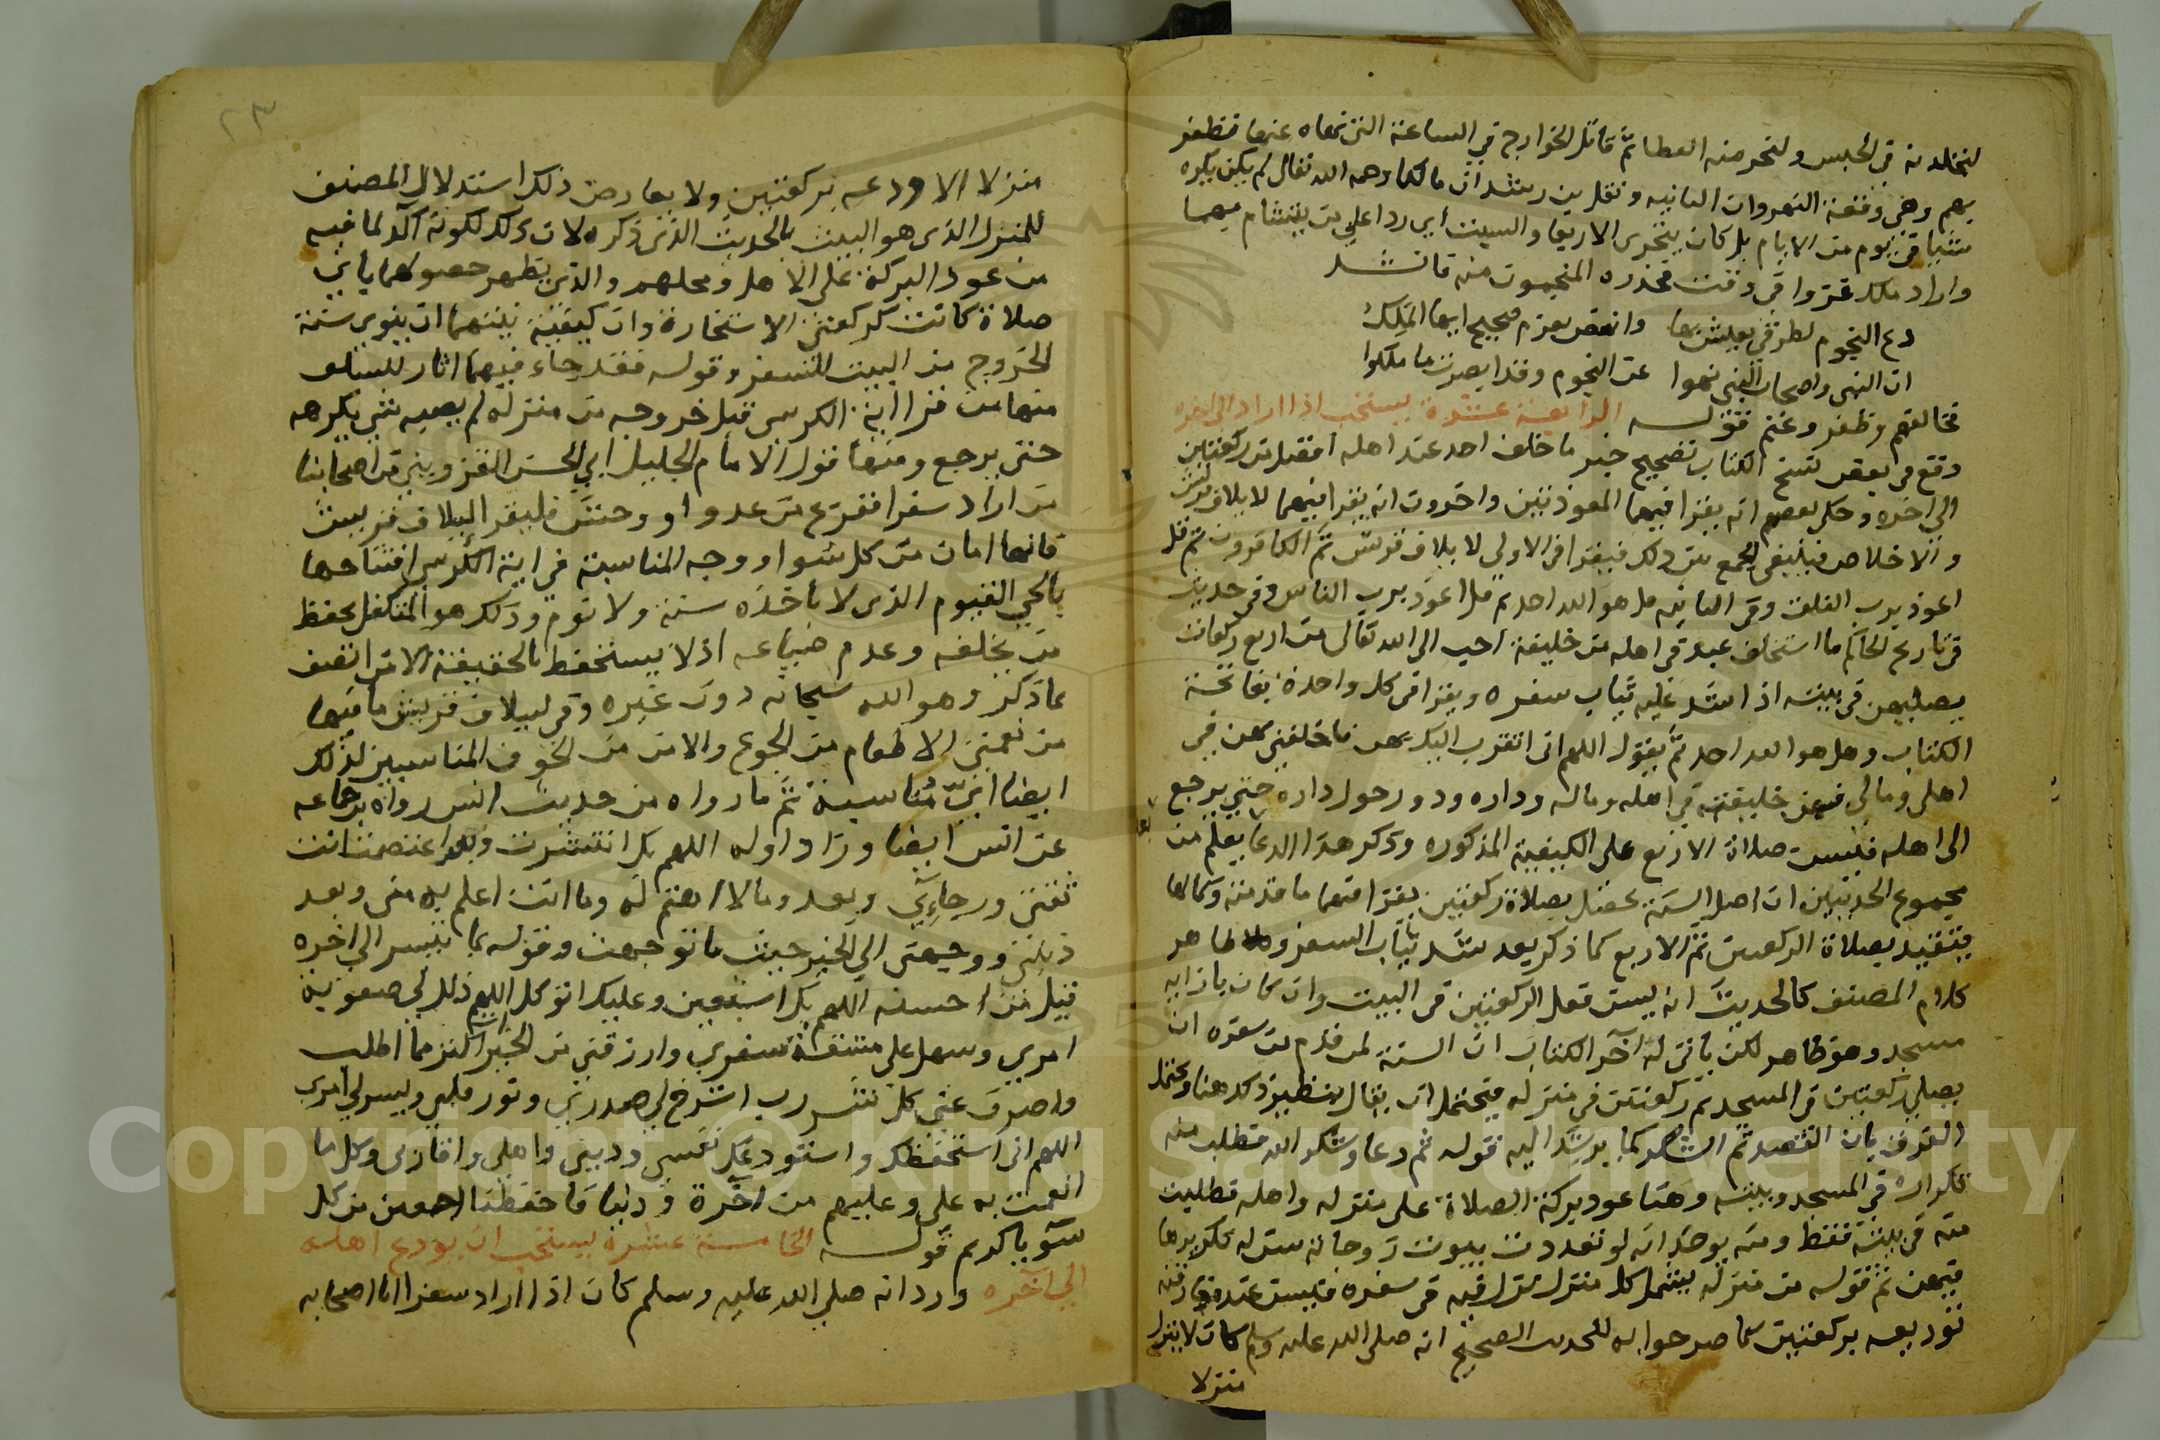 لنخلدنه في الحبس ولنحرمنه العطا ثم قاتل الخوارج في الساعة التي نهاه عنها فظفر
بهم وهي وقعة النهروان الثانيه ونقل بن رشد ان مالكا رحمه الله تعالى لم يكن يكره
شيا في يوم من الايام بل كان يتحرى الاربعا والسبت أي ردا على من يتشام بهما
واراد ملك غزوا في وقت فحذره المنجمون منه فانشد
دع النجوم لطرقي يعيش بها وانهض بعزم صحيح ايها الملك
ان النبي واصحاب النبي نهوا عن النجوم وقد ابصرت ما ملكوا
فخالفهم وظفر وغنم قوله الرابعة عشرة يستحب اذا اراد الى اخره
وقع في بعض نسخ الكتاب تصحيح خبر ما خلف احد عند اهله افضل من ركعتين
الى اخره وحكى بعضهم انه يقرا فيهما المعوذتين واخرون انه يقرا فيهما لايلاف قريش
والاخلاص فينبغي الجمع بين ذلك فيقرا في الاولى لايلاف قريش ثم الكافرون ثم قل
اعوذ برب الفلق وفي الثانيه قل هو الله احد ثم قل اعوذ برب الناس وفي حديث
في تاريخ الحاكم ما استخلف عبد في اهله من خليفة احب الى الله تعالى من اربع ركعات
يصليهن في بيته اذا شد عليه ثياب سفره ويقرا في كل واحدة بفاتحة
الكتاب وقل هو الله احد ثم يقول اللهم اني اتقرب اليك بهن فاخلفني بهن في
اهلي ومالي فهن خليفته في اهله وماله وداره ودور حول داره حتى يرجع
الى اهله فليست صلاة الاربع على الكيفية المذكوره وذكر هذا الدعا يعلم من
مجموع الحديثين ان اصل السنة يحصل بصلاة ركعتين يقرا فيهما ما قدمته وكمالها
يتقيد بصلاة الركعتين ثم الاربع كما ذكر بعد شد ثياب السفر وظاهر
كلام المصنف كالحديث انه يسن فعل الركعتين في البيت وان كان بازايه
مسجد وهو ظاهر لكن ياتي له اخر الكتاب ان السنة لمن قدم من سفره ان
يصلي ركعتين في المسجد ثم ركعتين في منزله فيحتمل ان يقال بنظير ذلك هنا ويحتمل
الفرق بان القصد ثم الشكر كما يرشد اليه قوله ثم دعا وشكر الله فطلب منه
تكراره في المسجد وبيته وهنا عود بركة الصلاة على منزله واهله فطلبت
منه في بيته فقط ومنه يوخذ انه لو تعددت بيوت زوجاته سن له تكريرها
فيهن ثم قوله من منزله يشمل كل منزل نزل فيه في سفره فيسن عند مفارقته
توديعه بركعتين كما صرحوا به للحديث الصحيح انه صلى الله عليه وسلم كان لا ينزل
منزلا
٢٣
منزلا الا ودعه بركعتين ولا يعارض ذلك استدلال المصنف
للمنزل الذي هو البيت بالحديث الذي ذكره لان ذلك لكونه آكد لما فيه
من عود البركة على الاهل ومحلهم والذي يظهر حصولهما باي
صلاة كانت كركعتي الاستخارة وان كيفية نيتهما ان ينوي سنة
الخروج من البيت للسفر وقوله فقد جاء فيهما اثار للسلف
منها من قرا اية الكرسي قبل خروجه من منزله لم يصبه شي يكرهه
حتى يرجع ومنها قول الامام الجليل ابي الحسن القزويني من اصحابنا
من اراد سفرا ففزع من عدو او وحش فليقرا ليلاف قريش
فانها امان من كل سوء ووجه المناسبة في اية الكرسي افتتاحها
بالحي القيوم الذي لا تأخذه سنة ولا نوم وذلك هو المتكفل بحفظ
من يخلفه وعدم ضياعه اذ لا يستحفظ بالحقيقة الا من اتصف
بما ذكر وهو الله سبحانه دون غيره وفي ليلاف قريش ما فيها
من نعمتي الاطعام من الجوع والامن من الخوف المناسبين لذلك
ايضا اي مناسبة ثم ما رواه من حديث انس رواه جماعه
عن انس ايضا وزاد اوله اللهم بك انتشرت وبك اعتصمت انت
ثقتي ورجاءي وبعد ومالا اهتم له وما انت اعلم به مني وبعد
ذنبي ووجهني الى الخير حيث ما توجهت وقوله بما تيسر الى اخره
قيل من احسنه اللهم بك استعين وعليك اتوكل اللهم ذلل لي صعوبة
امري وسهل علي مشقة سفري وارزقني من الخير اكثر مما اطلب
واصرف عني كل شر رب اشرح لي صدري ونور قلبي ويسر لي امري
اللهم اني استحفظك واستودعك نفسي وديني واهلي واقاربي وكل ما
انعمت به علي وعليهم من اخرة ودنيا فاحفظنا اجمعين من كل
سوء يا كريم قوله الخامسة عشرة يستحب ان يودع اهله
الى آخره ورد انه صلى الله عليه وسلم كان اذا اراد سفرا اتا اصحابه
Copyright © King Saud University